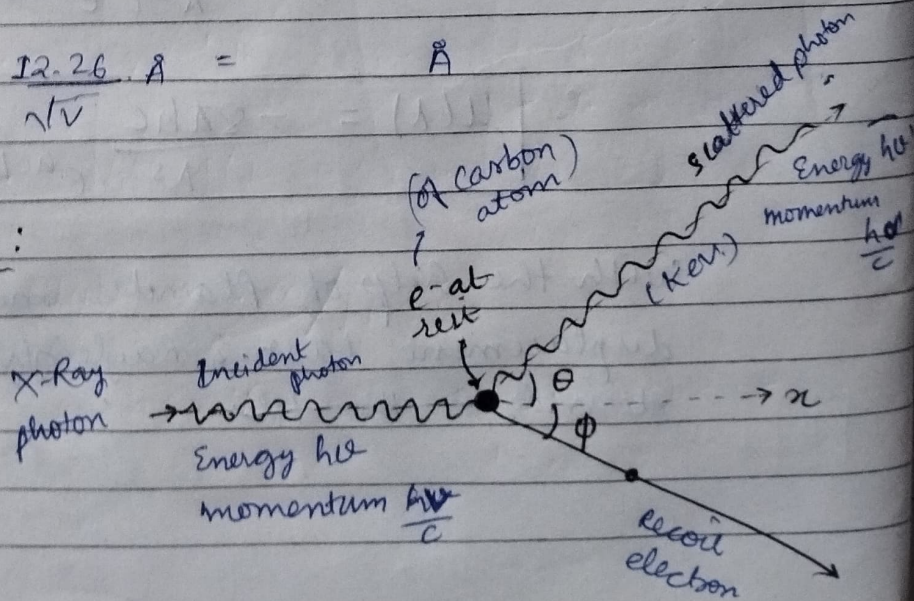 12.26 Å = Å
√V
:
(of carbon)
atom
↑
e- at
rest
scattered photon
Energy hν
momentum
hν
c
(KeV)
X-Ray
photon
Incident
photon
Energy hν
momentum hν
c
θ
φ
→ x
Recoil
electron